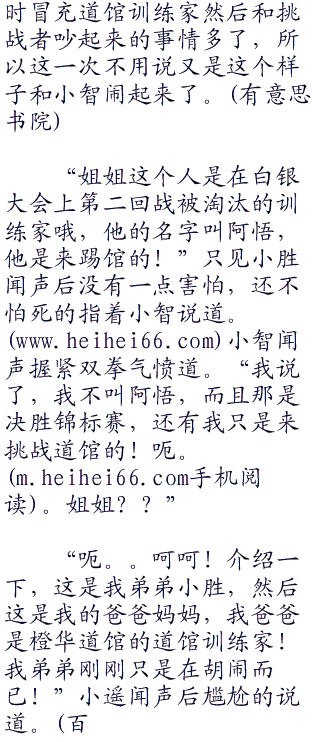 时冒充道馆训练家然后和挑
战者吵起来的事情多了，所
以这一次不用说又是这个样
子和小智闹起来了。(有意思
书院)
“姐姐这个人是在白银
大会上第二回战被淘汰的训
练家哦，他的名字叫阿悟，
他是来踢馆的！”只见小胜
闻声后没有一点害怕，还不
怕死的指着小智说道。
(www.heihei66.com)小智闻
声握紧双拳气愤道。“我说
了，我不叫阿悟，而且那是
决胜锦标赛，还有我只是来
挑战道馆的！呃。
(m.heihei66.com手机阅
读)。姐姐？？”
“呃。。呵呵！介绍一
下，这是我弟弟小胜，然后
这是我的爸爸妈妈，我爸爸
是橙华道馆的道馆训练家！
我弟弟刚刚只是在胡闹而
已！”小遥闻声后尴尬的说
道。(百